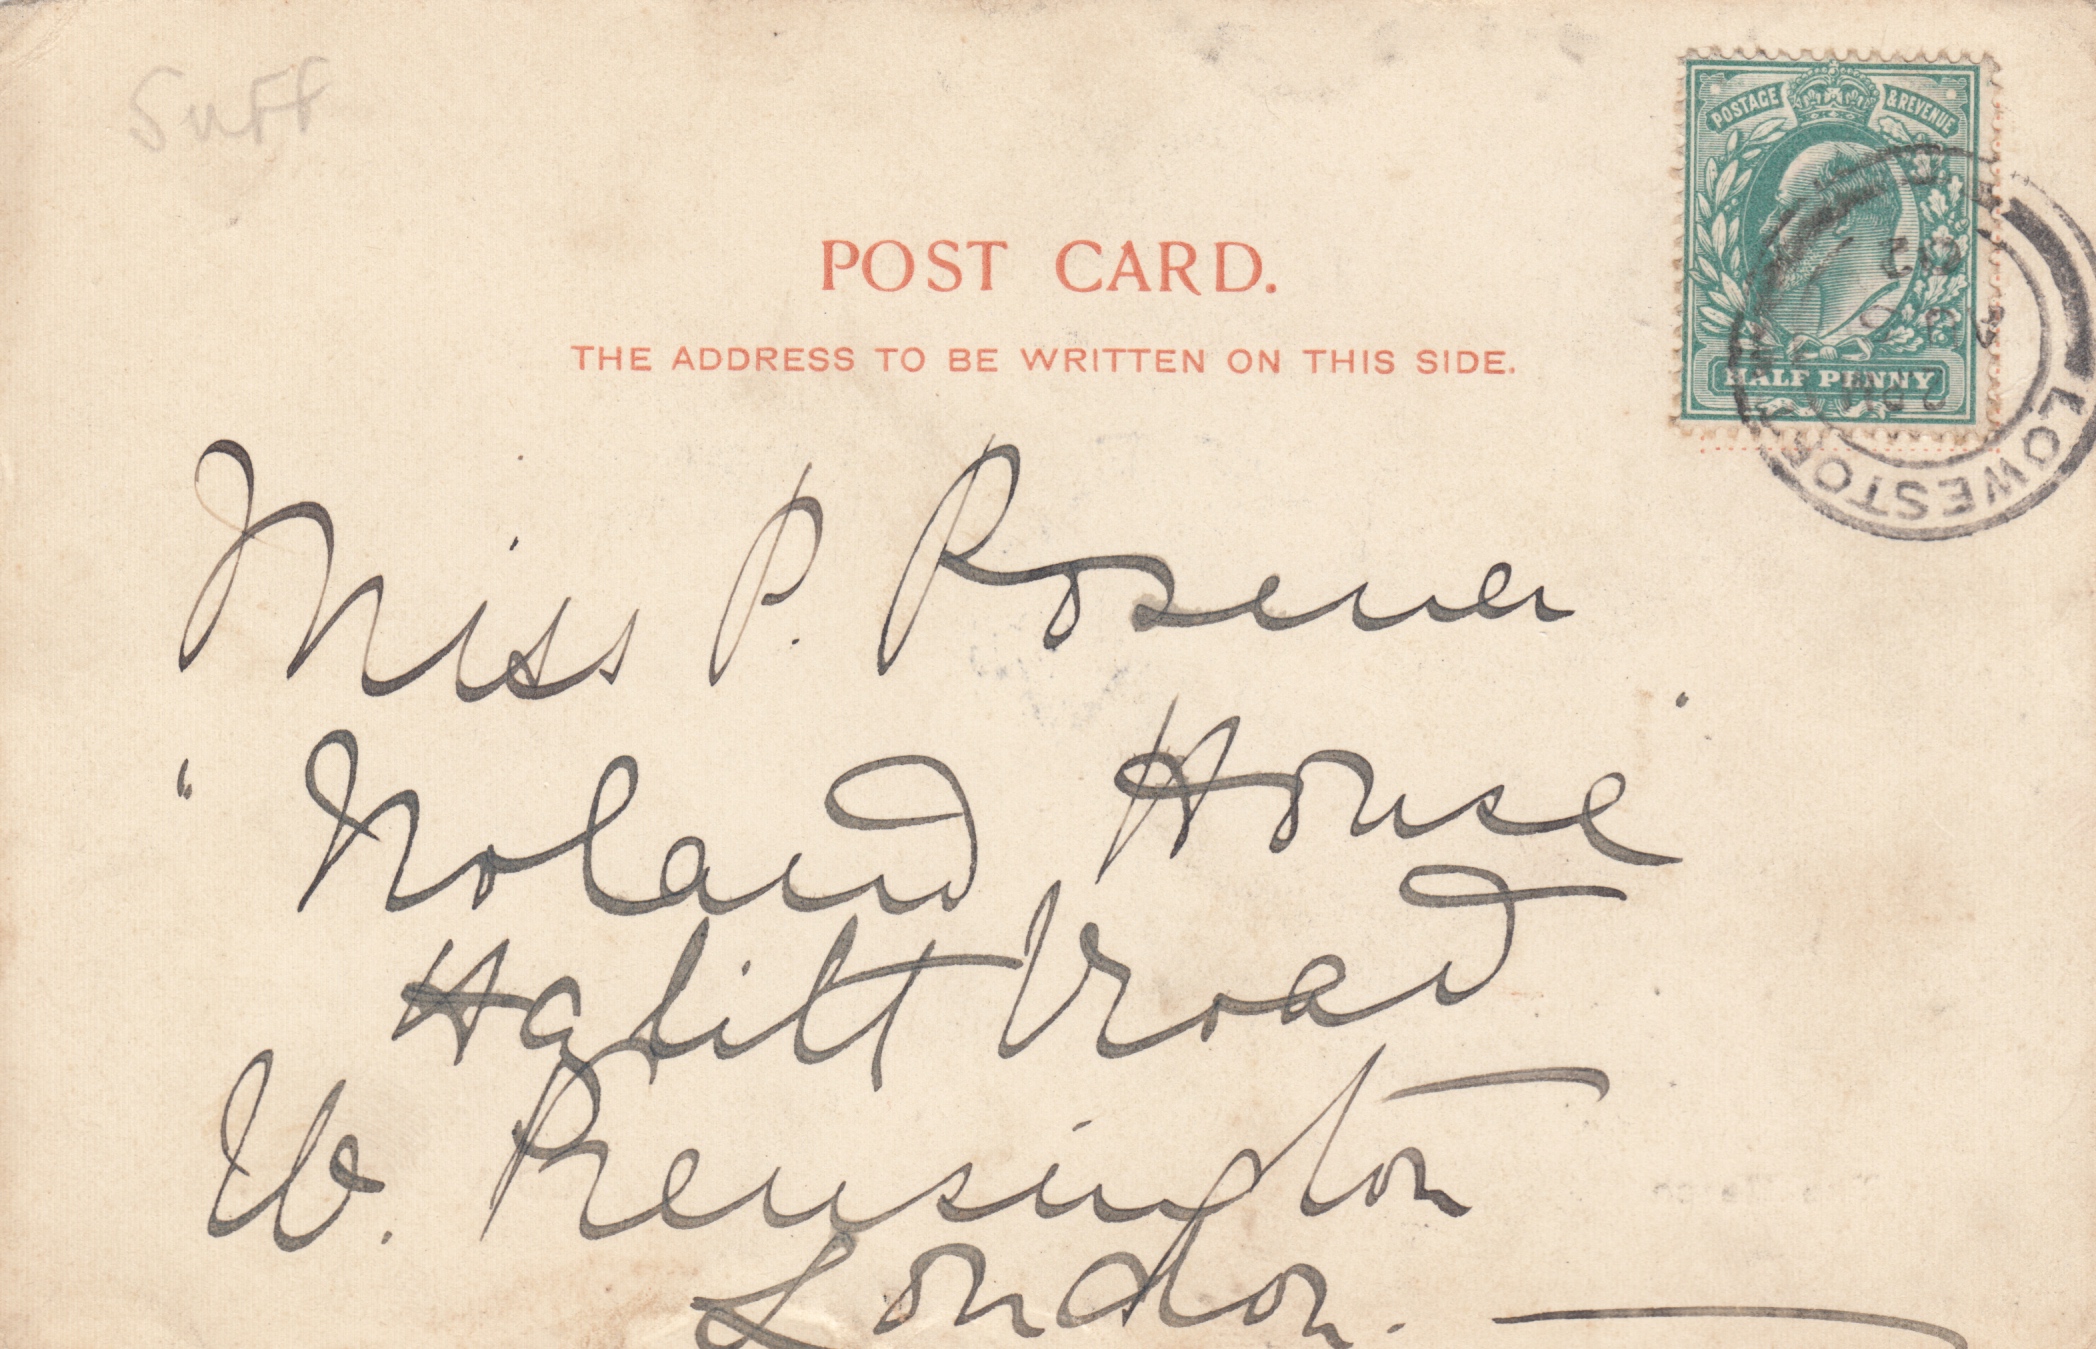 Suff
POSTAGE & REVENUE
HALF PENNY
LOWESTOFT
POST CARD.
THE ADDRESS TO BE WRITTEN ON THIS SIDE.
Miss P. Rosener
"Noland House"
Hazlitt Road
W. Kensington
London.